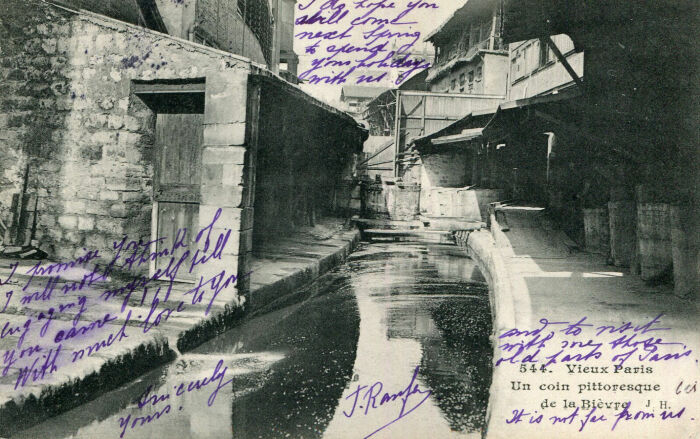 I do hope you
will come
next Spring
to spend
your holidays
with us.
and to visit
with me, those
old parts of Paris.
544. Vieux Paris
Un coin pittoresque
de la Bièvre J H
It is not far from us.
I promise you
I will not think of
engaging myself till
you came !!!
With much love to you
Sincerely
yours.
J. Ranfa